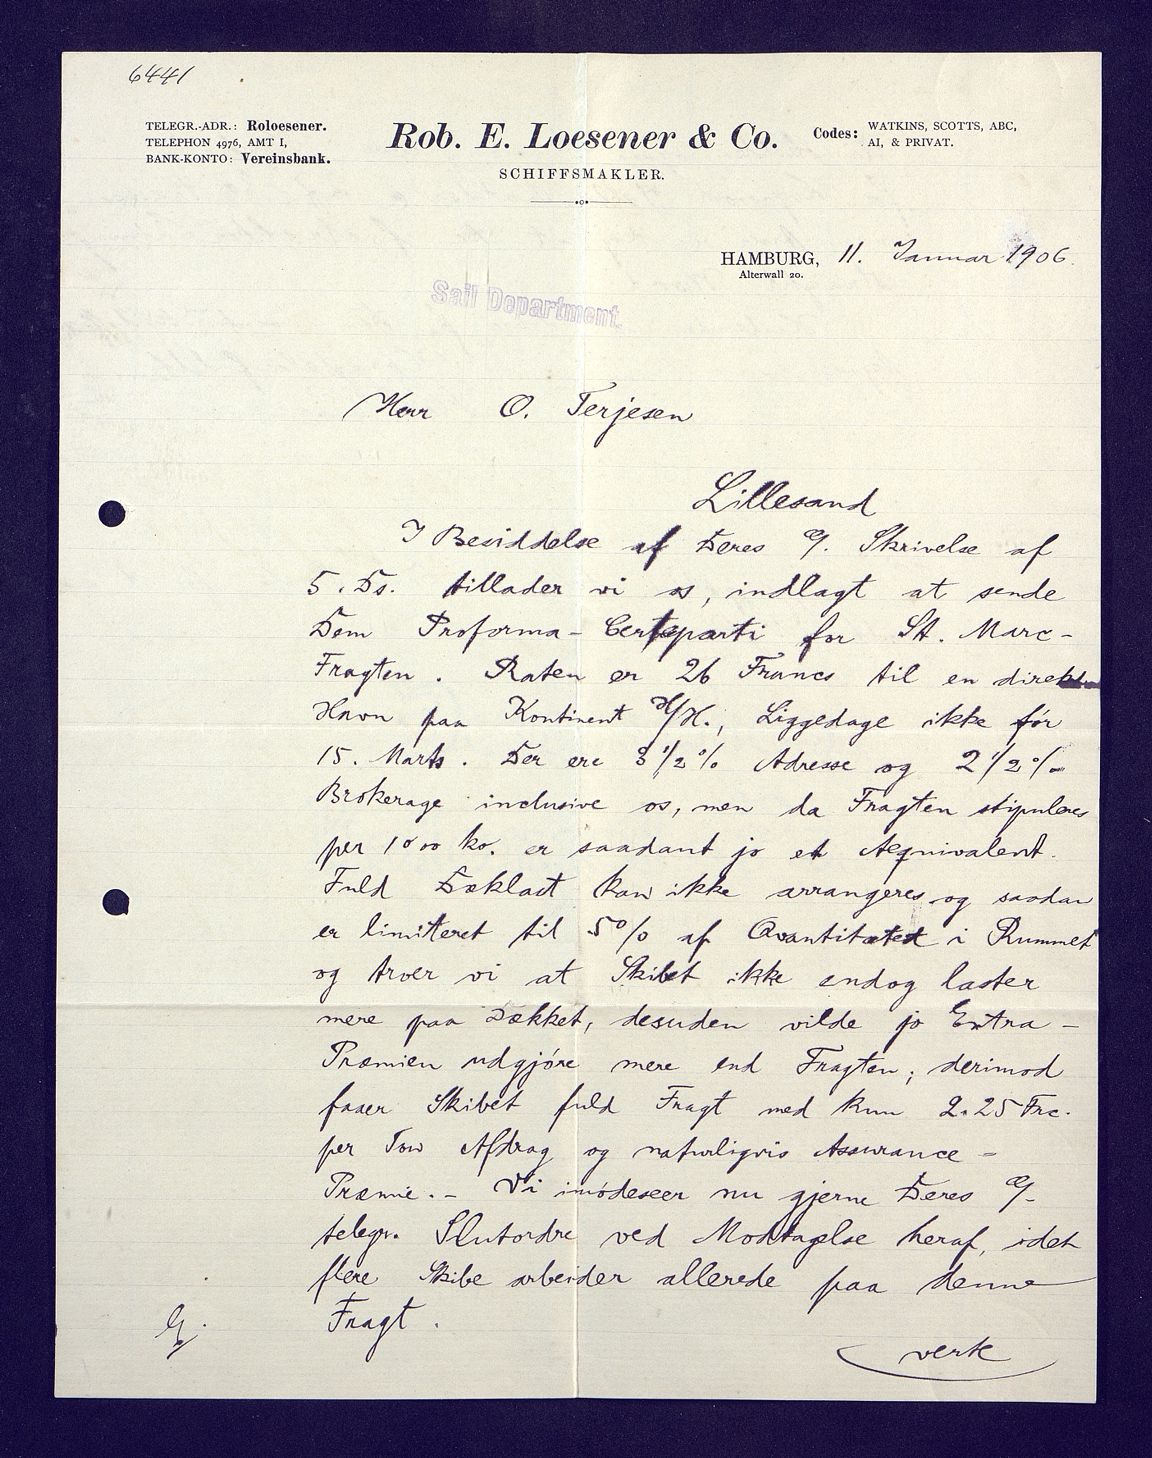 6441
TELEGR.-ADR.: Roloesener.
TELEPHON 4976, AMT I,
BANK-KONTO: Vereinsbank.
Rob. E. Loesener & Co.
SCHIFFSMAKLER.
Codes: WATKINS, SCOTTS, ABC,
AI, & PRIVAT.
HAMBURG, 11. Januar 1906.
Alterwall 20.
Sail Department.
Herr O. Terjesen
Lillesand
I Besiddelse af Deres Skrivelse af
5. Ds. tillader vi os, indlagt at sende
Dem Proforma-Certeparti for St. Marc-
Fragten. Raten er 26 Francs til en direkte
Havn paa Kontinent H/H., Liggedage ikke før
15. Marts. Der ere 3 1/2 % Adresse og 2 1/2 %
Brokerage inclusive os, men da Fragten stipuleres
per 1000 ko. er saadant jo et Aequivalent.
Fuld Dæklast kan ikke arrangeres og saadan
er limiteret til 5% af Qvantitetet i Rummet
og troer vi at Skibet ikke endog laster
mere paa Dækket, desuden vilde jo Extra-
Præmien udgjøre mere end Fragten; derimod
faaer Skibet fuld Fragt med kun 2.25 Frc.
per Ton Afdrag og naturligvis Assurance-
Præmie.- Vi imødeseer nu gjerne Deres
telegr. Slutordre ved Modtagelse heraf, idet
flere Skibe arbeider allerede paa denne
Fragt.
verte